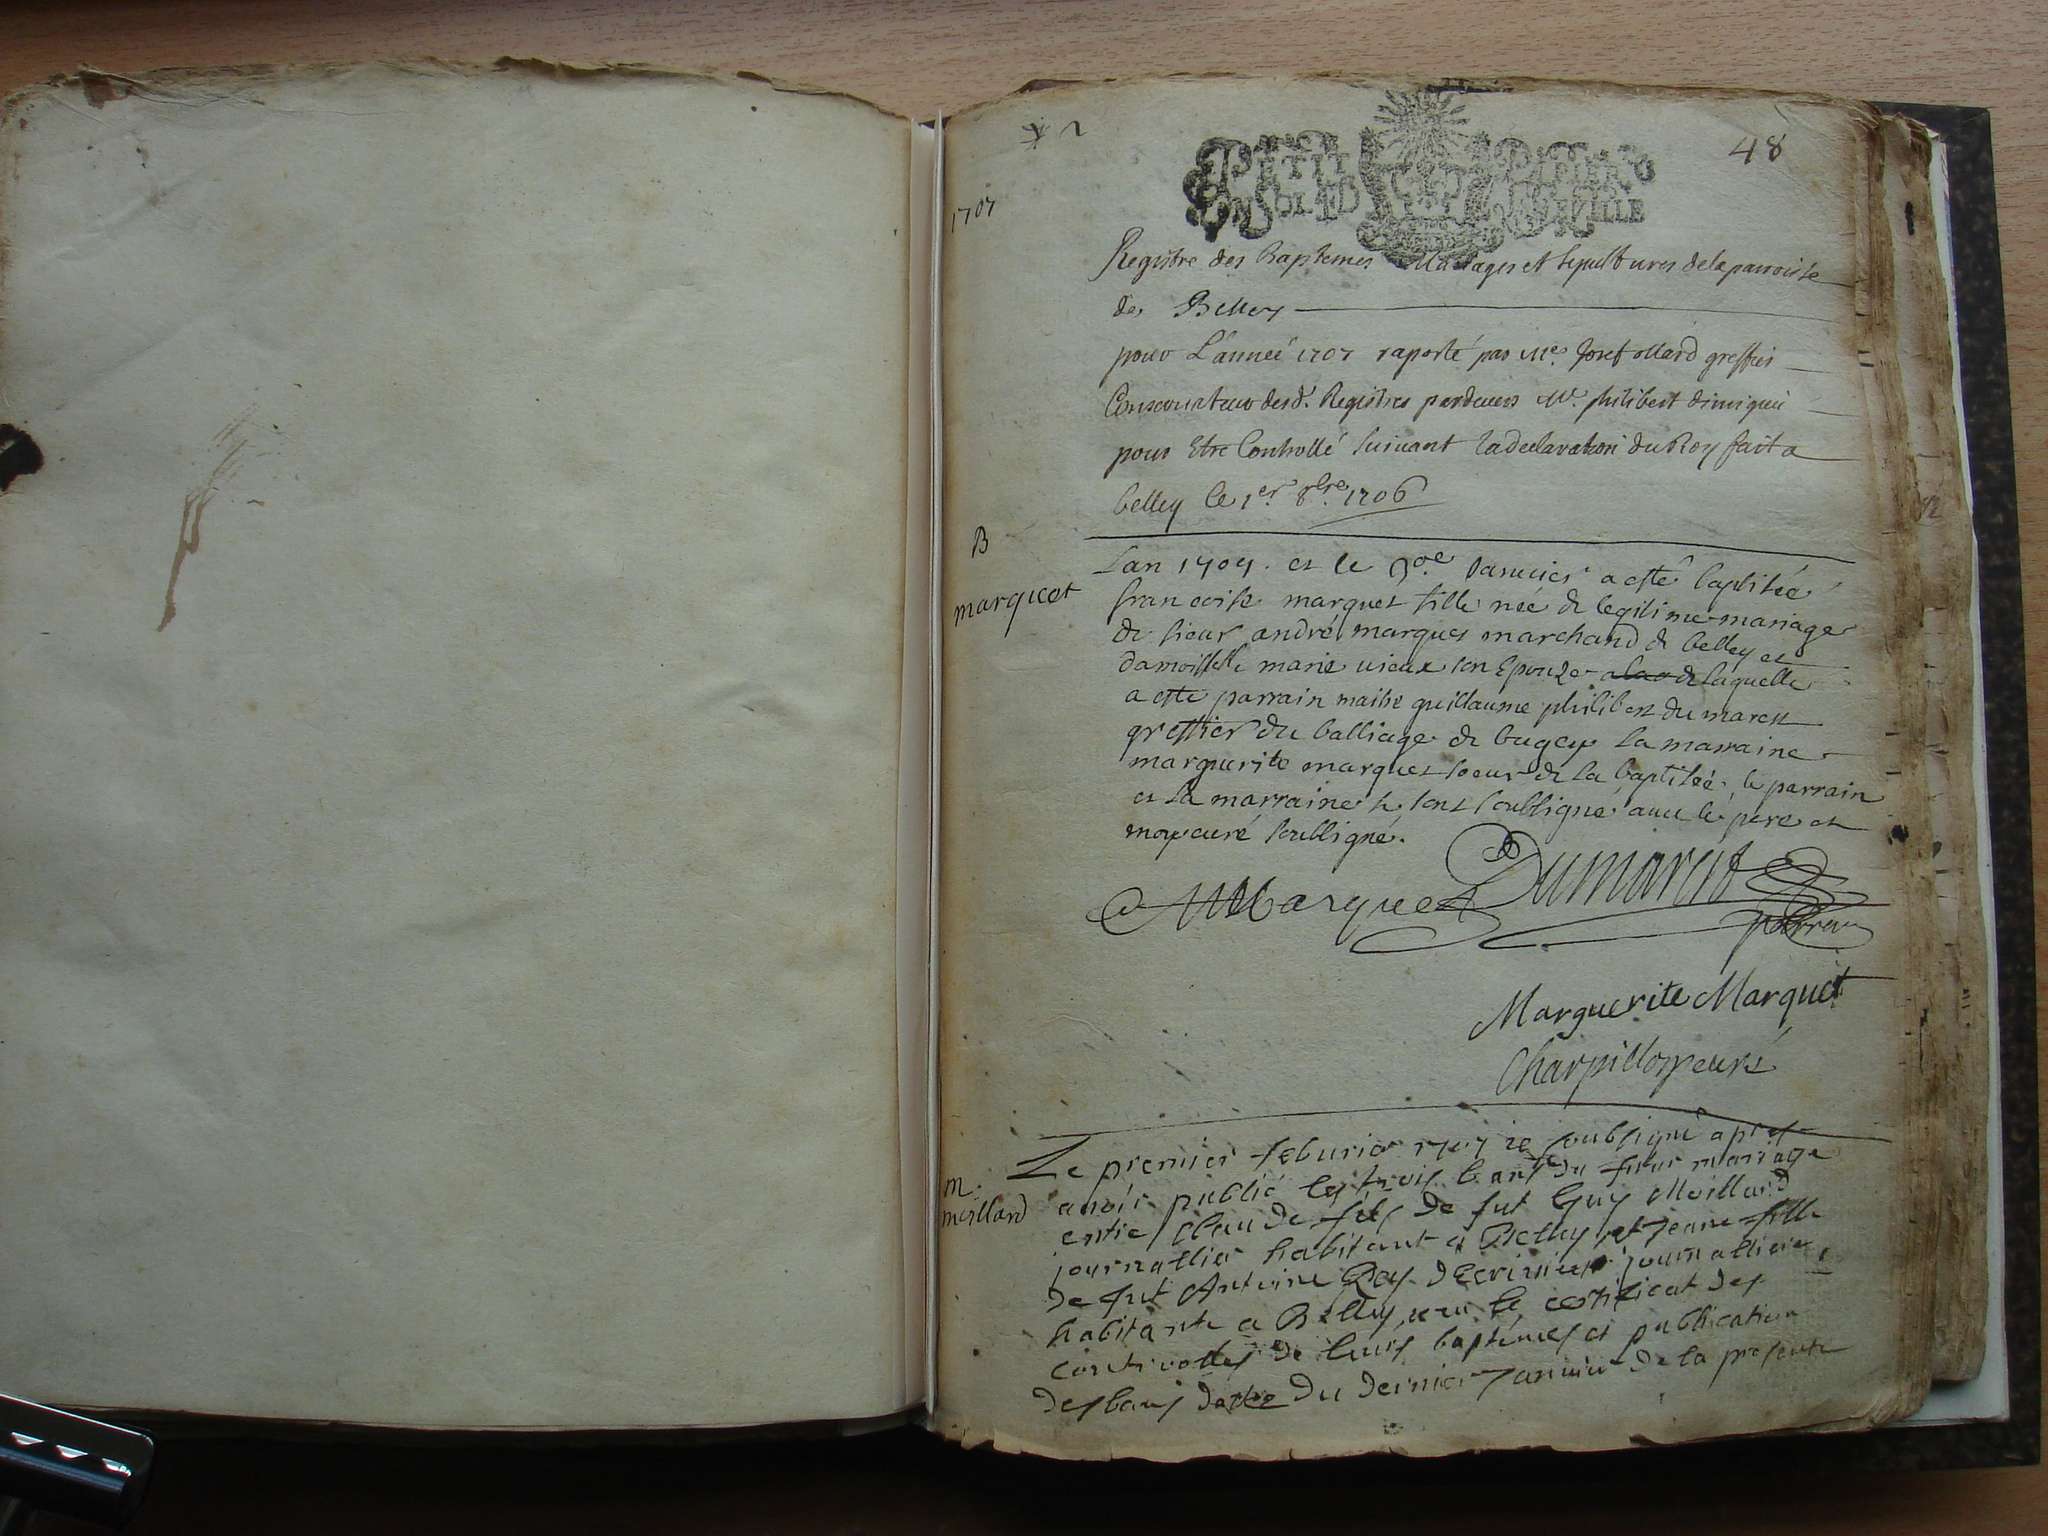 48
1707
PETIT PAPIER
Registre des Baptemes Mariages et sepultures de la parroisse
de Belley
pour L'année 1707 raporté par Me. Josef ollard greffier
Conservateur desd. Registres pardevers Mr. philibert
pour Etre Controllé suivant la declaration du Roy fait a
belley le 1er. 8bre. 1706
B
marquet
Lan 1707. et le Janvier a esté baptisée
francoise marquet fille née de legitime mariage
de sieur andré marquet marchand de belley et
damoiselle marie vieux son Epouze de laquelle
a este parrain maitre guillaume philibert du marest
greffier du balliage de bugey la marraine
marguerite marquet soeur de la baptisée, le parrain
et la marraine se sont soubsigné avec le pere et
moy curé soubsigné.
Marquet Dumarest
parrain
Marguerite Marquet
curé
m.
moillard
Le premier feburier 1707 je soubsigné apres
avoir publié les trois bans du futur mariage
entre Claude fils de fut Guy Moillard
journallier habitant a Belley et Jeane fille
de fut Antoine Rey journalliere,
habitante a Belley, veu le certificat des
de leurs baptemes et publication
des bans du dernier Janvier de la presente